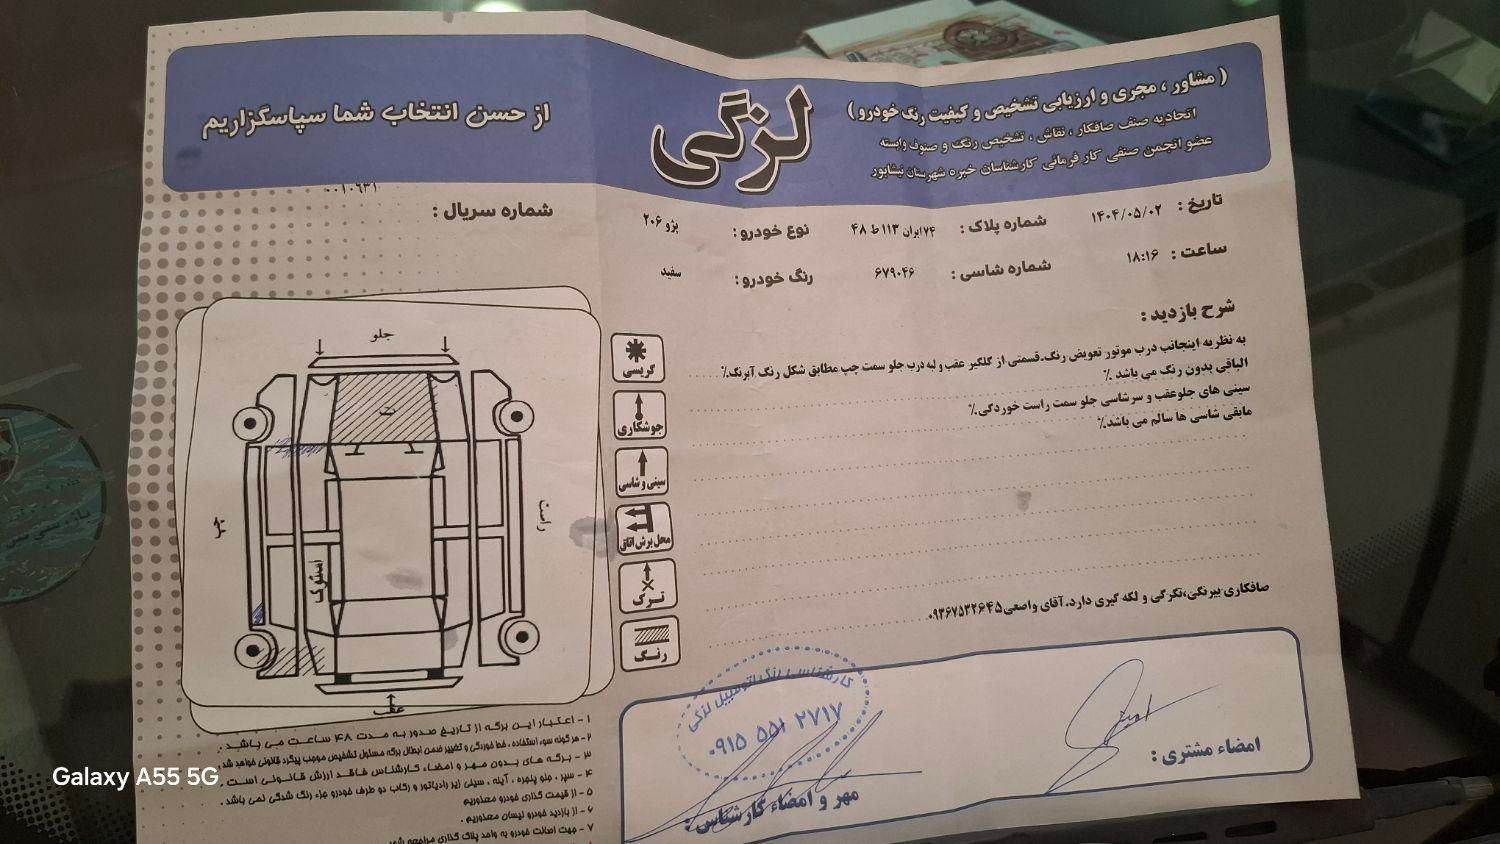 ( مشاور ، مجری و ارزیابی تشخیص و کیفیت رنگ خودرو )
اتحادیه صنف صافکار ، نقاش ، تشخیص رنگ و صنوف وابسته
عضو انجمن صنفی کار فرمائی کارشناسان خبره شهرستان نیشابور
لزگی
از حسن انتخاب شما سپاسگزاریم
تاریخ : ۱۴۰۴/۰۵/۰۲
شماره پلاک : ۷۴ایران ۱۱۳ ط ۴۸
نوع خودرو : پژو ۲۰۶
شماره سریال : ۰۰۱۰۶۳۱
ساعت : ۱۸:۱۶
شماره شاسی : ۶۷۹۰۴۶
رنگ خودرو : سفید
شرح بازدید :
به نظریه اینجانب درب موتور تعویض رنگ.قسمتی از گلگیر عقب و لبه درب جلو سمت چپ مطابق شکل رنگ آبرنگ.٪
الباقی بدون رنگ می باشد ٪
سینی های جلوعقب و سرشاسی جلو سمت راست خوردگی.٪
مابقی شاسی ها سالم می باشد.٪
صافکاری بیرنگی،تگرگی و لکه گیری دارد.آقای واصعی۰۹۳۶۷۵۳۲۶۴۵
گریسی
جوشکاری
سینی و شاسی
محل برش اتاق
ترک
رنگ
جلو
ت
چپ
راست
استوک
عقب
۱ - اعتبار این برگه از تاریخ صدور به مدت ۴۸ ساعت می باشد .
۲- هر گونه سوء استفاده ، خط خوردگی و تغییر ضمن ابطال برگه مسئول تشخیص موجب پیگرد قانونی خواهد شد .
۳ - برگه های بدون مهر و امضاء کارشناس فاقد ارزش قانونی است .
۴ - سپر ، جلو پنجره ، آینه ، سینی زیر رادیاتور و رکاب دو طرف خودرو جزء رنگ شدگی نمی باشد .
۵ - از قیمت گذاری خودرو معذوریم
۶ - از بازدید خودرو نیسان معذوریم .
۷ - جهت اصالت خودرو به واحد پلاک گذاری مراجعه شود
کارشناسی رنگ اتومبیل لزگی
۰۹۱۵ ۵۵۱ ۲۷۱۷
مهر و امضاء کارشناس :
امضاء مشتری :
Galaxy A55 5G